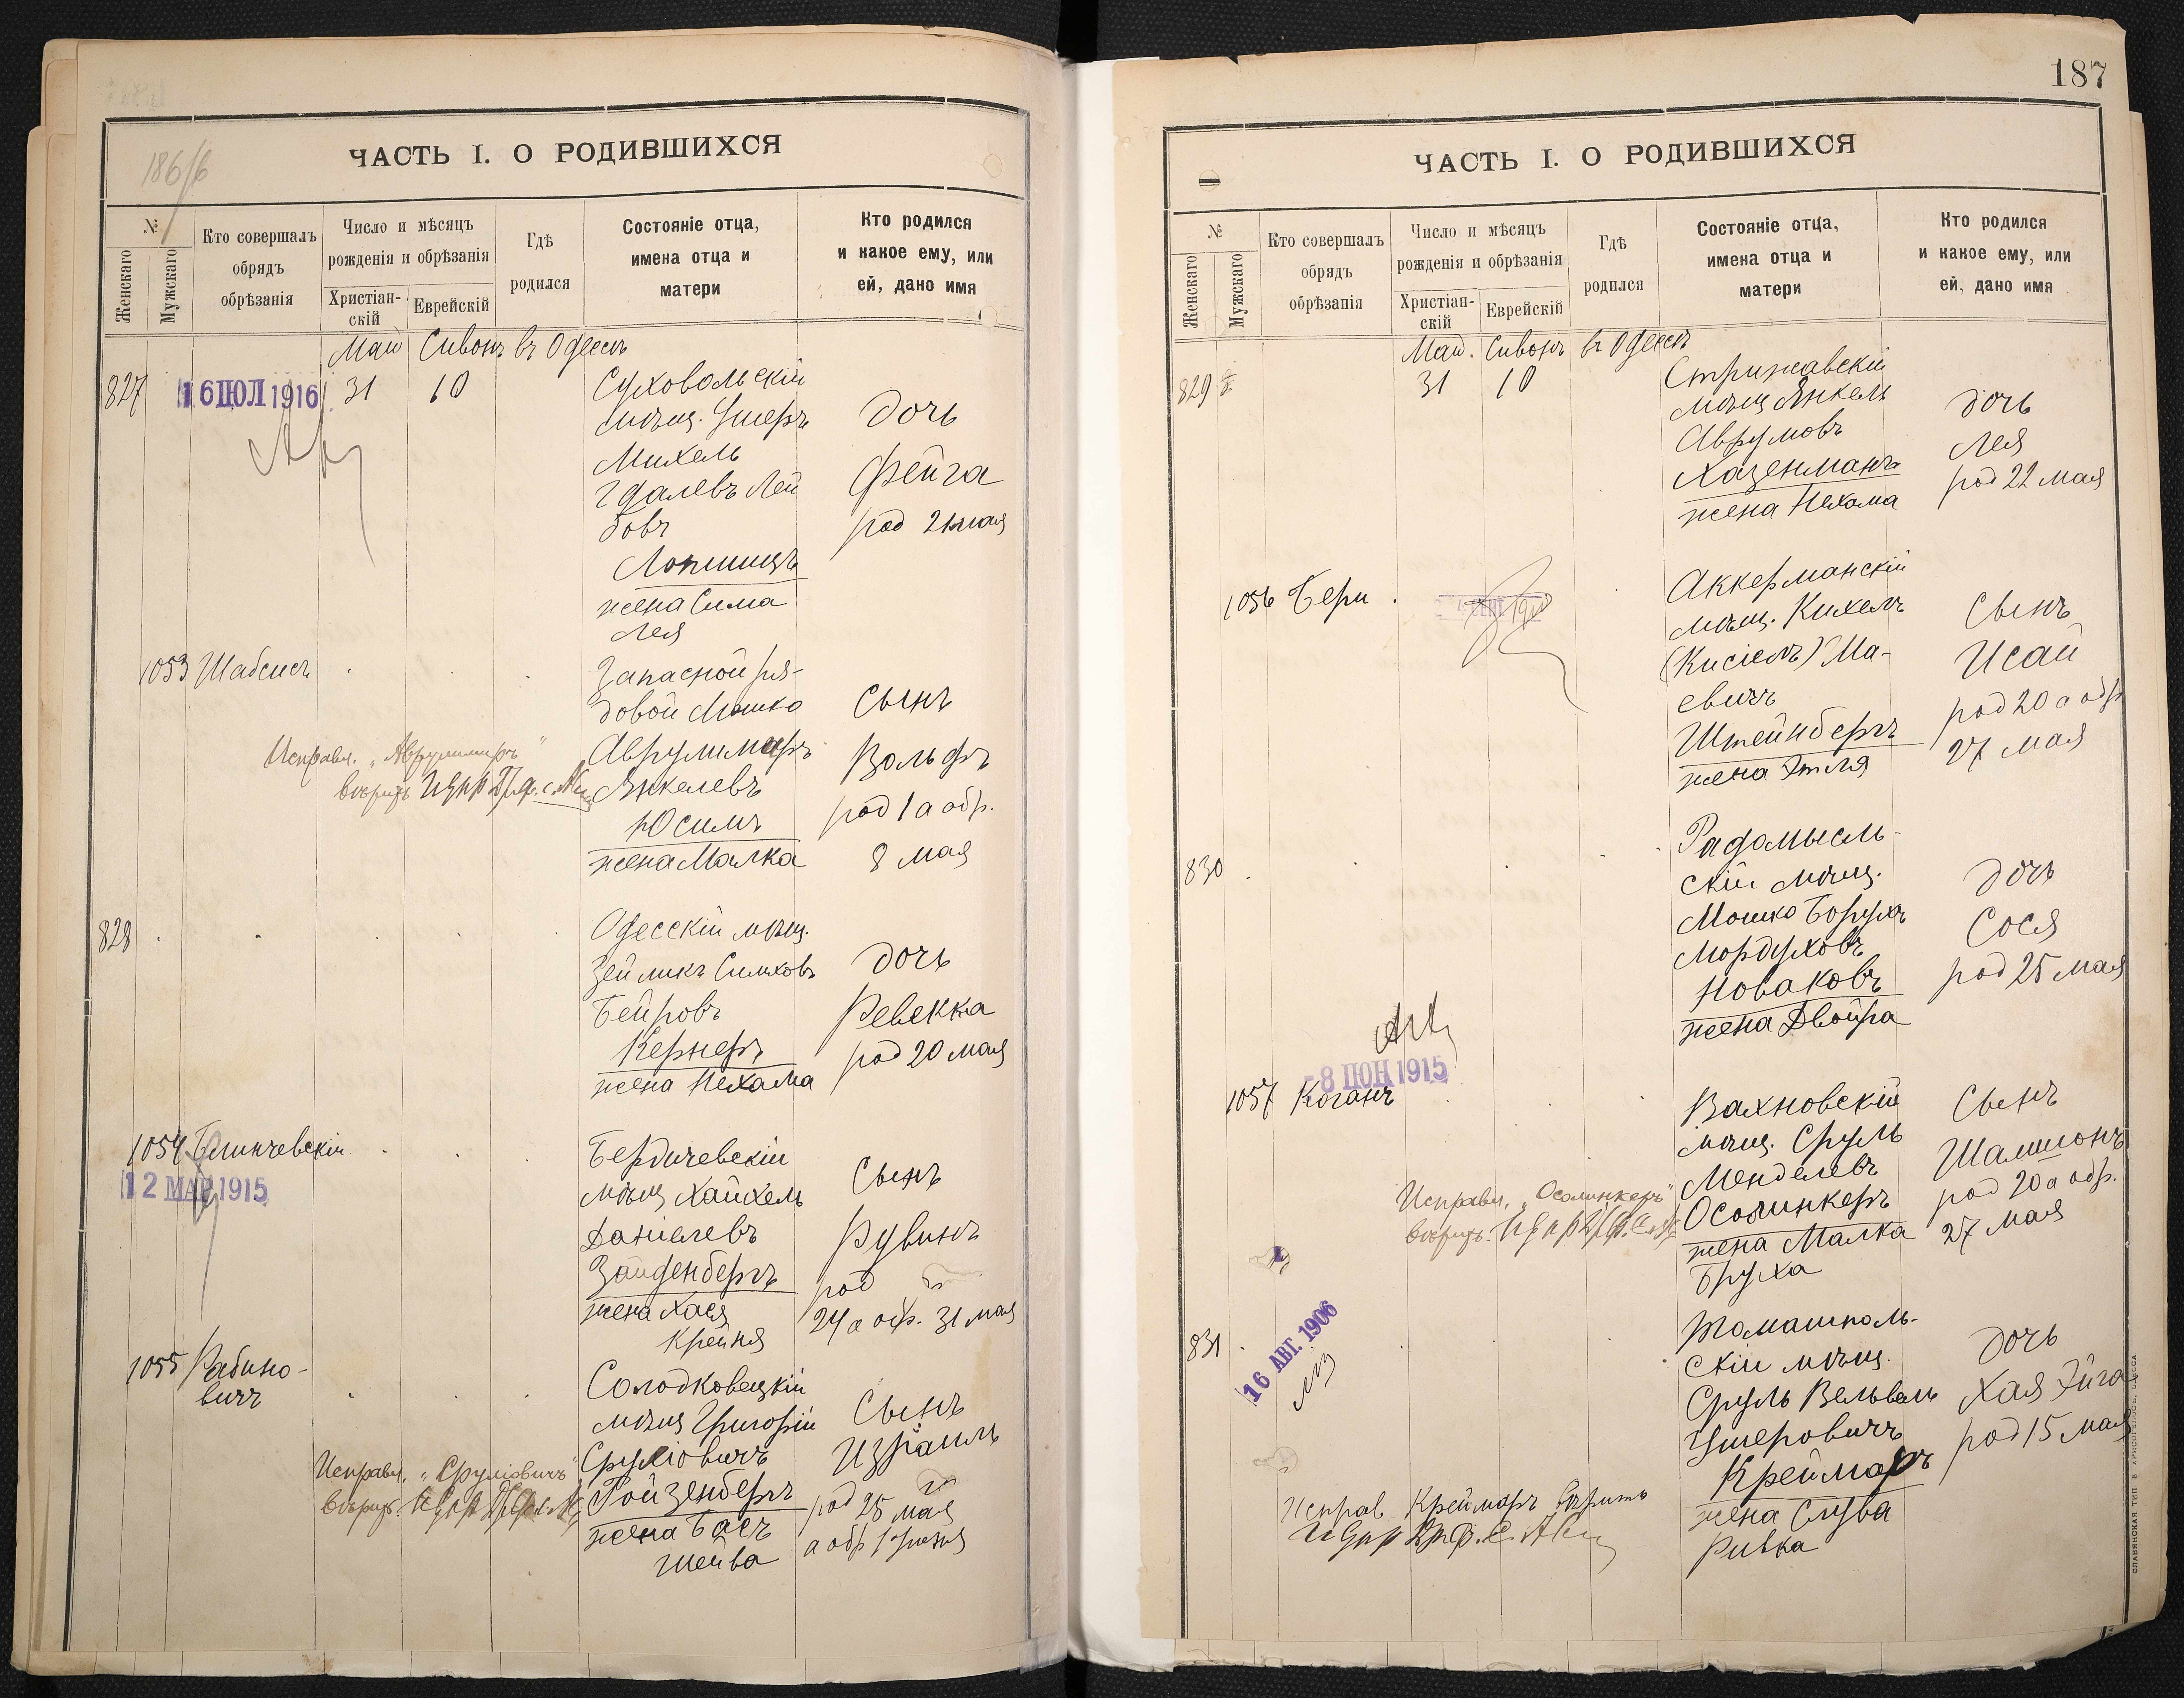 186/6
ЧАСТЬ I. О РОДИВШИХСЯ
№
Женскаго
Мужскаго
Кто совершалъ
обрядъ
обрѣзанія
Число и мѣсяцъ
рожденія и обрѣзанія
Христіан-
скій
Еврейскій
Гдѣ
родился
Состояніе отца,
имена отца и
матери
Кто родился
и какое ему, или
ей, дано имя
Май Сивонъ въ Одессѣ
827
16 ІЮЛ 1916
31 10
Суховольскій
мѣщ. Ушеръ
Михель
Гдалевъ Лей
бовъ
Лопшицъ
жена Сима
Лея
дочь
Фейга
род 21 мая
1053 Шабсисъ
Запасной ря-
довой Мошко
Аврулимаръ
Янкелевъ
Юсимъ
жена Малка
Сынъ
Вольфъ
род 1 а обр.
8 мая
Исправл. „Аврулимаръ"
вѣрить
828
Одесскій мѣщ.
Зейликъ Симховъ
Бейровъ
Кернеръ
жена Нехама
дочь
Ревекка
род 20 мая
1054 Блинчевскій
12 МАР 1915
Бердичевскій
мѣщ Хайкель
Даніелевъ
Зайденбергъ
жена Хася
Крейня
Сынъ
Рувинъ
род
24 а обр. 31 мая
1055 Рабино-
вичъ
Солодковецкій
мѣщ Григорій
Сруліовичъ
Ройзенбергъ
жена Бася
Шейва
Сынъ
Израиль
род 25 мая
а обр 1 Іюня
Исправл. „Сруліовичъ"
вѣрить.
187
ЧАСТЬ I. О РОДИВШИХСЯ
№
Женскаго
Мужскаго
Кто совершалъ
обрядъ
обрѣзанія
Число и мѣсяцъ
рожденія и обрѣзанія
Христіан-
скій
Еврейскій
Гдѣ
родился
Состояніе отца,
имена отца и
матери
Кто родился
и какое ему, или
ей, дано имя
Май. Сивонъ въ Одессѣ
829
31 10
Стрижавскій
мѣщ Янкель
Аврумовъ
Хазенманъ
жена Нехама
дочь
Лея
род 22 мая
1056 Бери
Аккерманскій
мѣщ. Кихелъ
(Кисіелъ) Ма-
евичъ
Штейнбергъ
жена Этля
Сынъ
Исай
род 20 а обр
27 мая
830
Радомысль-
скій мѣщ.
Мошко Борухъ
Мордуховъ
Новаковъ
жена Двойра
дочь
Сося
род 25 мая
-8 ІЮН 1915
1057 Коганъ
Вахновскій
мѣщ. Сруль
Менделевъ
Осолинкеръ
жена Малка
Бруха
Сынъ
Шамшонъ
род 20 а обр.
27 мая
Исправл. „Осолинкеръ"
вѣрить.
831
16 АВГ. 1906
Томашполь-
скій мѣщ.
Сруль Вельвель
Ушеровичъ
Креймаръ
жена Слува
Ривка
дочь
Хая Эйга
род 15 мая
Исправ Креймаръ вѣрить
СЛАВЯНСКАЯ ТИП. Е. ХРИСОГЕЛОСЪ, ОДЕССА